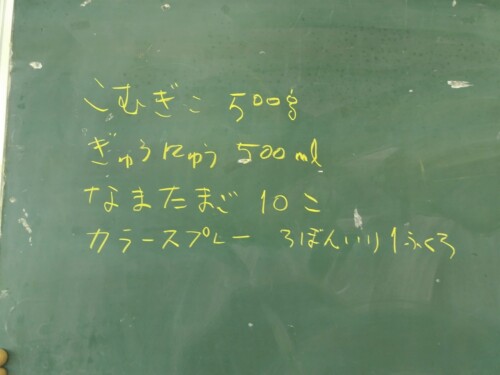 こむぎこ 500g
ぎゅうにゅう 500ml
なまたまご 10こ
カラースプレー 3ぼんいり1ふくろ